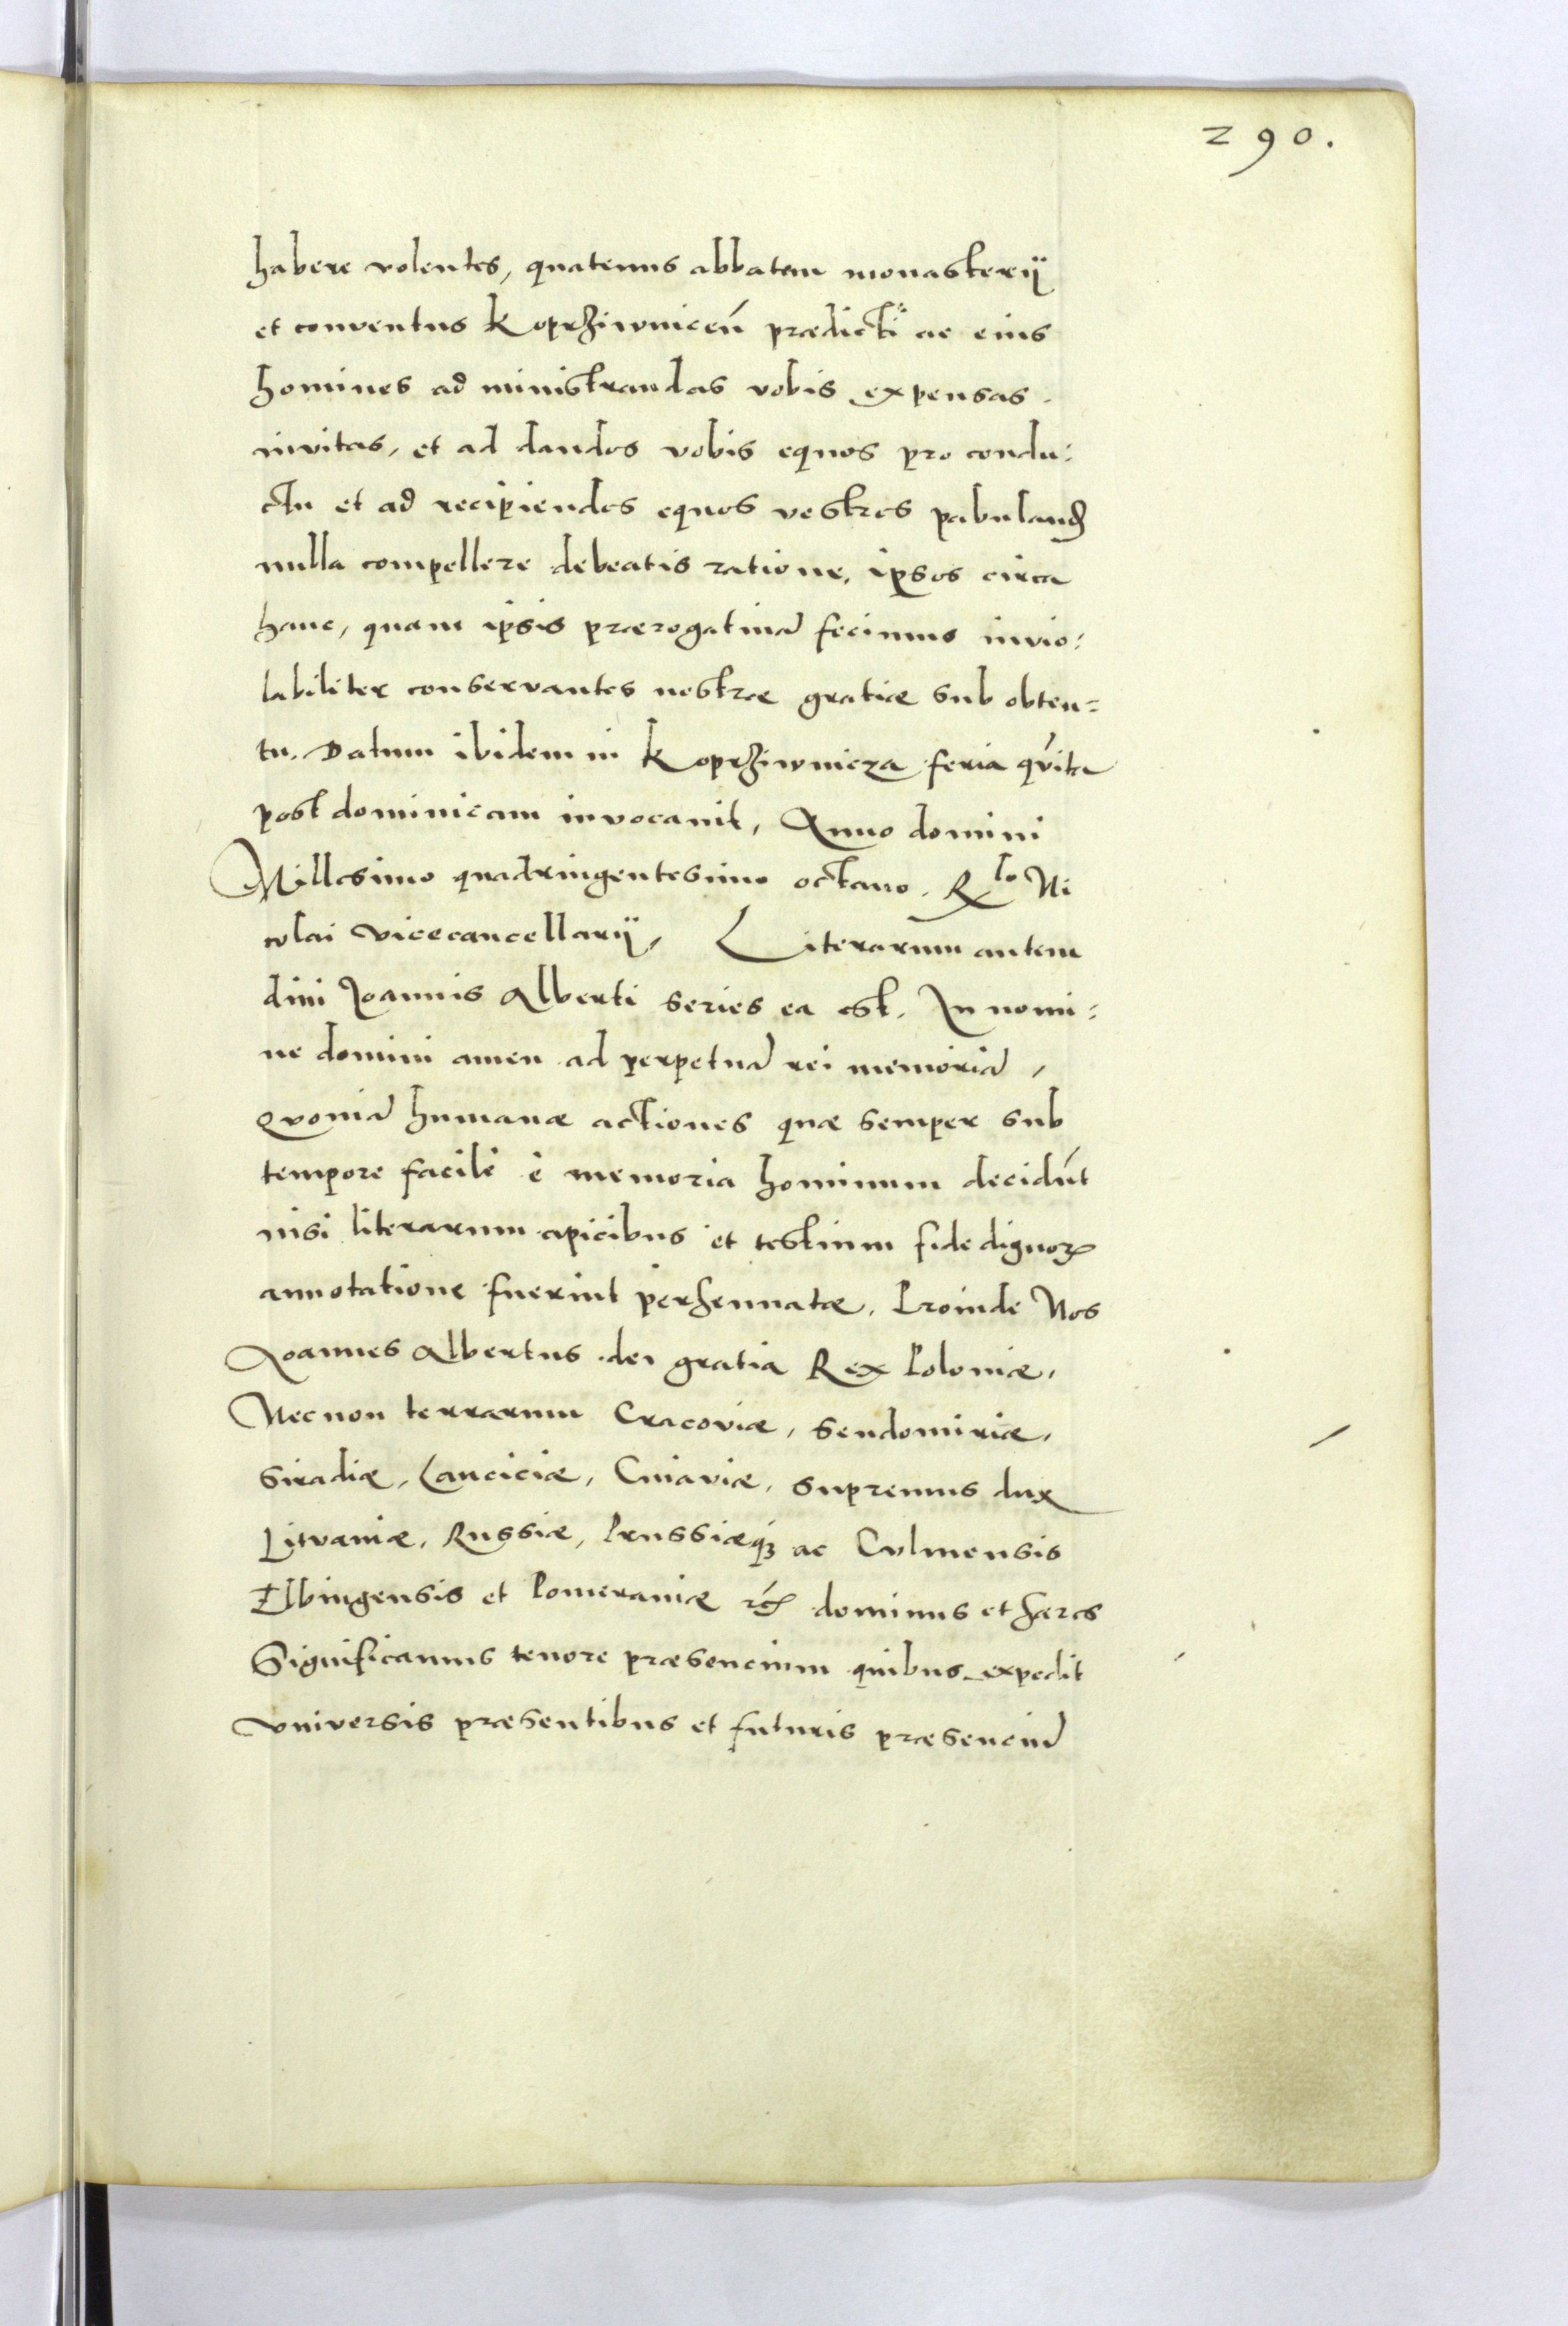 290.
habere volentes, quatenus abbatem monasterij
et conventus Koprziwniceń prædicti ac eius
homines ad ministrandas vobis expensas
invitas, et ad dandos vobis equos pro condu:
ctu et ad recipiendos equos vestros pabuland
nulla compellere debeatis ratione, ipsos circa
hanc, quam ipsis prærogatiuā fecimus invio:
labiliter conservantes nostræ gratiæ sub obten=
tu. Datum ibidem in Koprziwnicza feria qūita
post dominicam invocauit, Anno domini
Millesimo quadringentesimo octauo. Rlo Ni
colai vicecancellarij, Literarum autem
diui Joannis Alberti series ea est. In nomi:
ne domini amen ad perpetuā rei memoriā,
Qvoniā humanæ actiones quæ semper sub
tempore facile è memoria hominum decidūt
nisi literarum apicibus et testium fide dignoꝝ
annotatione fuerint perhennatæ. Proinde Nos
Joannes Albertus dei gratia Rex Poloniæ,
Necnon terrarum Cracoviæ, Sendomiriæ,
Siradiæ, Lanciciæ, Cuiaviæ, supremus dux
Litvaniæ, Russiæ, Prussiæqꝫ ac Culmensis
Elbingensis et Pomeraniæ etc dominus et hæres
Significamus tenore præsencium quibus expedit
vniversis præsentibus et futuris præsenciū